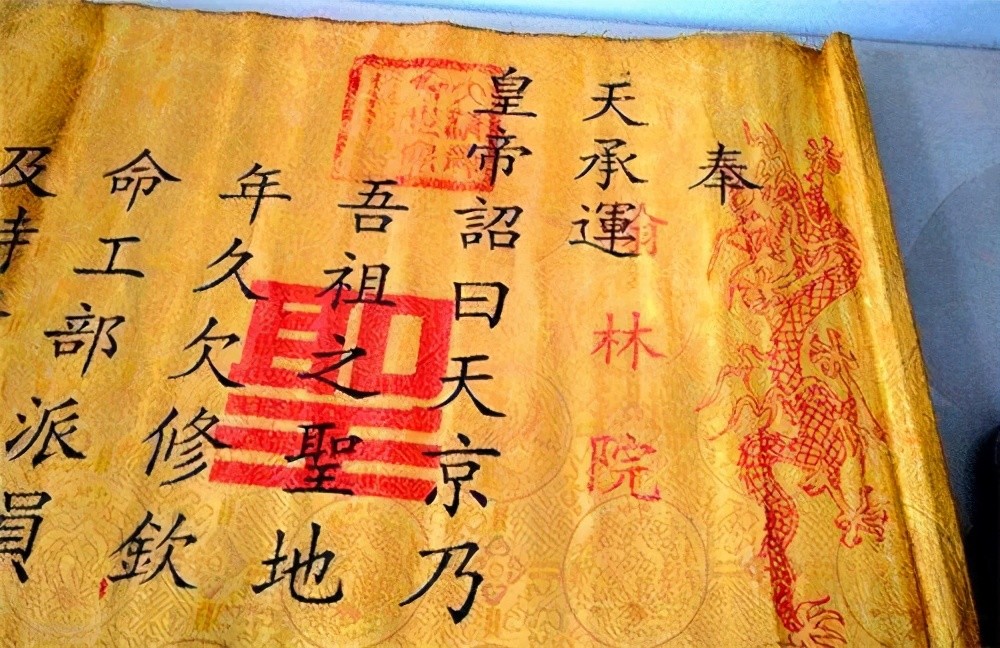 奉
天承運
林院
皇帝詔曰天京乃
吾祖之聖地
聖
年久欠修欽
命工部派員
及